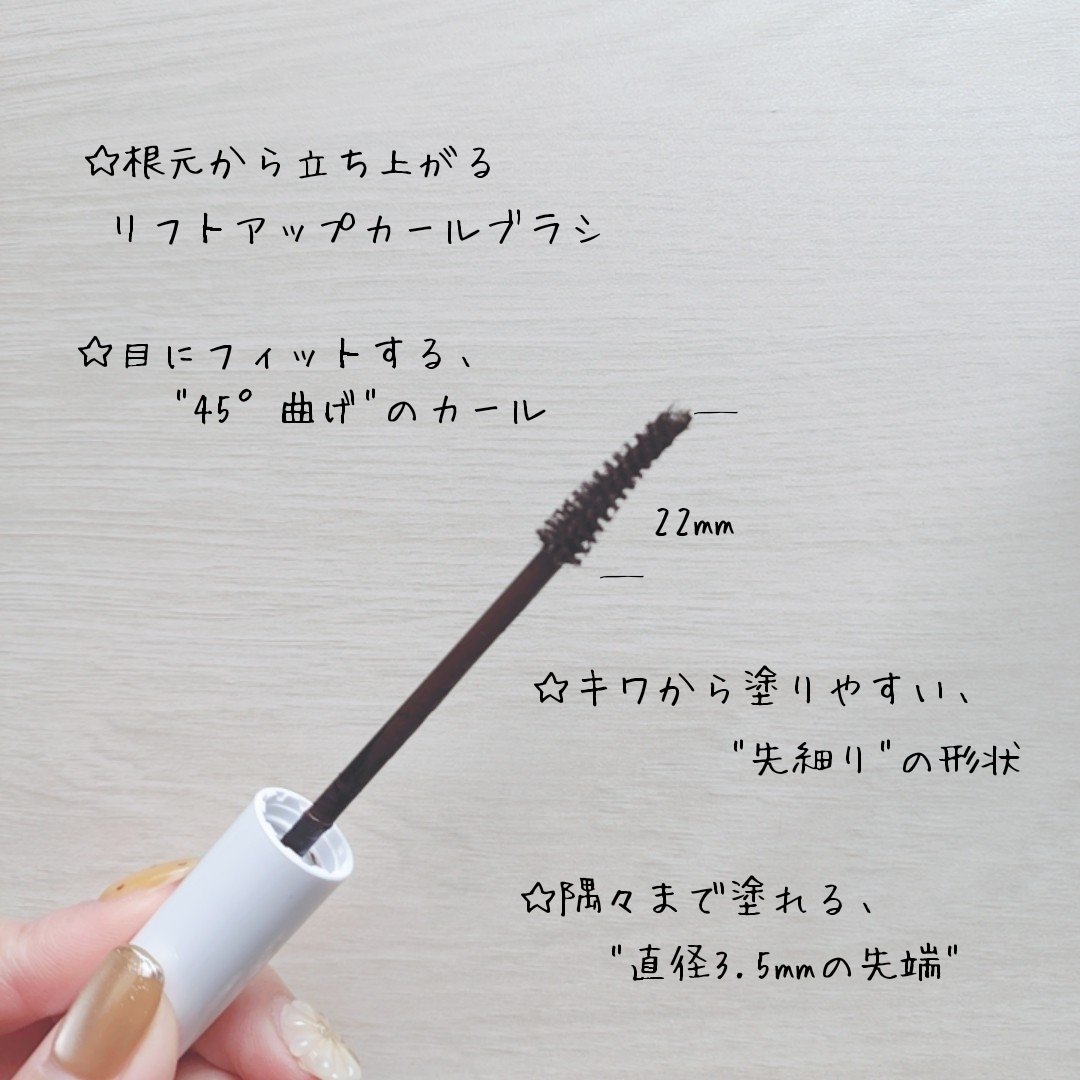 ☆根元から立ち上がる
リフトアップカールブラシ
☆目にフィットする、
"45°曲げ"のカール
22mm
☆キワから塗りやすい、
"先細り"の形状
☆隅々まで塗れる、
"直径3.5mmの先端"